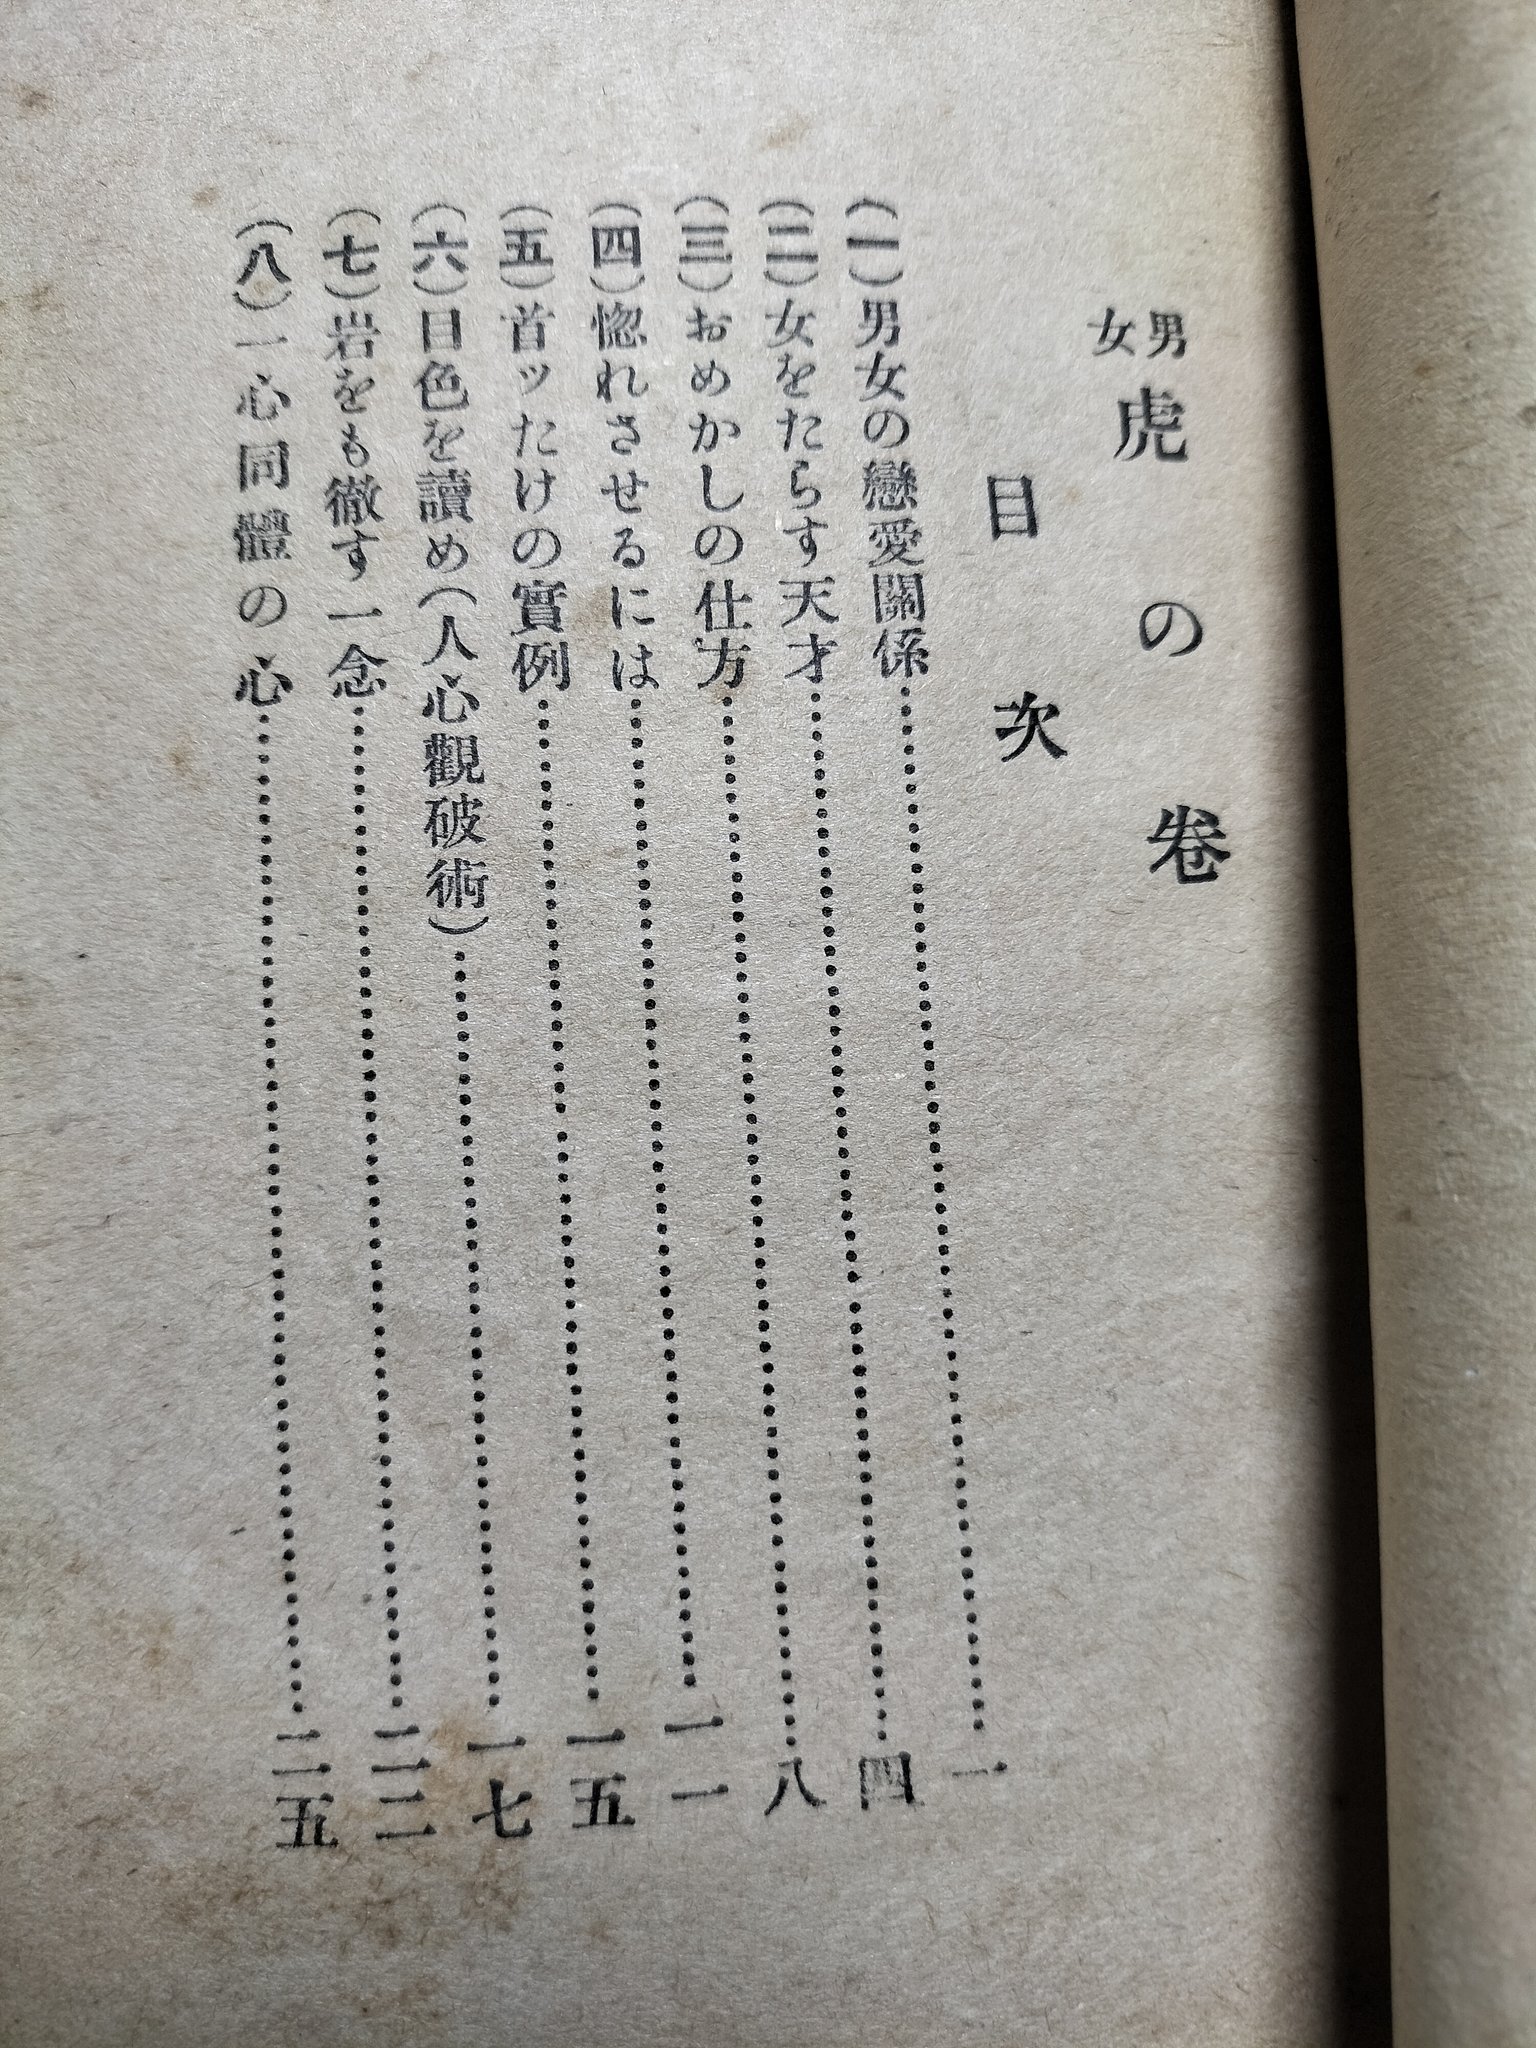 男女虎の卷
目次
(一)男女の戀愛關係………一
(二)女をたらす天才………四
(三)おめかしの仕方………八
(四)惚れさせるには………一一
(五)首ッたけの實例………一五
(六)目色を讀め(人心觀破術)………一七
(七)岩をも徹す一念………二二
(八)一心同體の心………二五